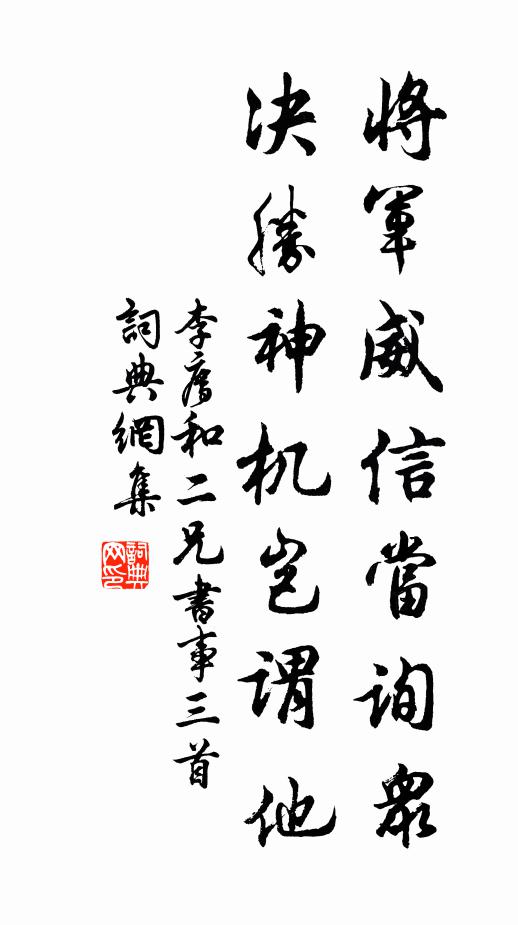 將軍威信當詢衆
决勝神机岂謂他
李廌和二兄書事三首
詞典網集
詞典网印